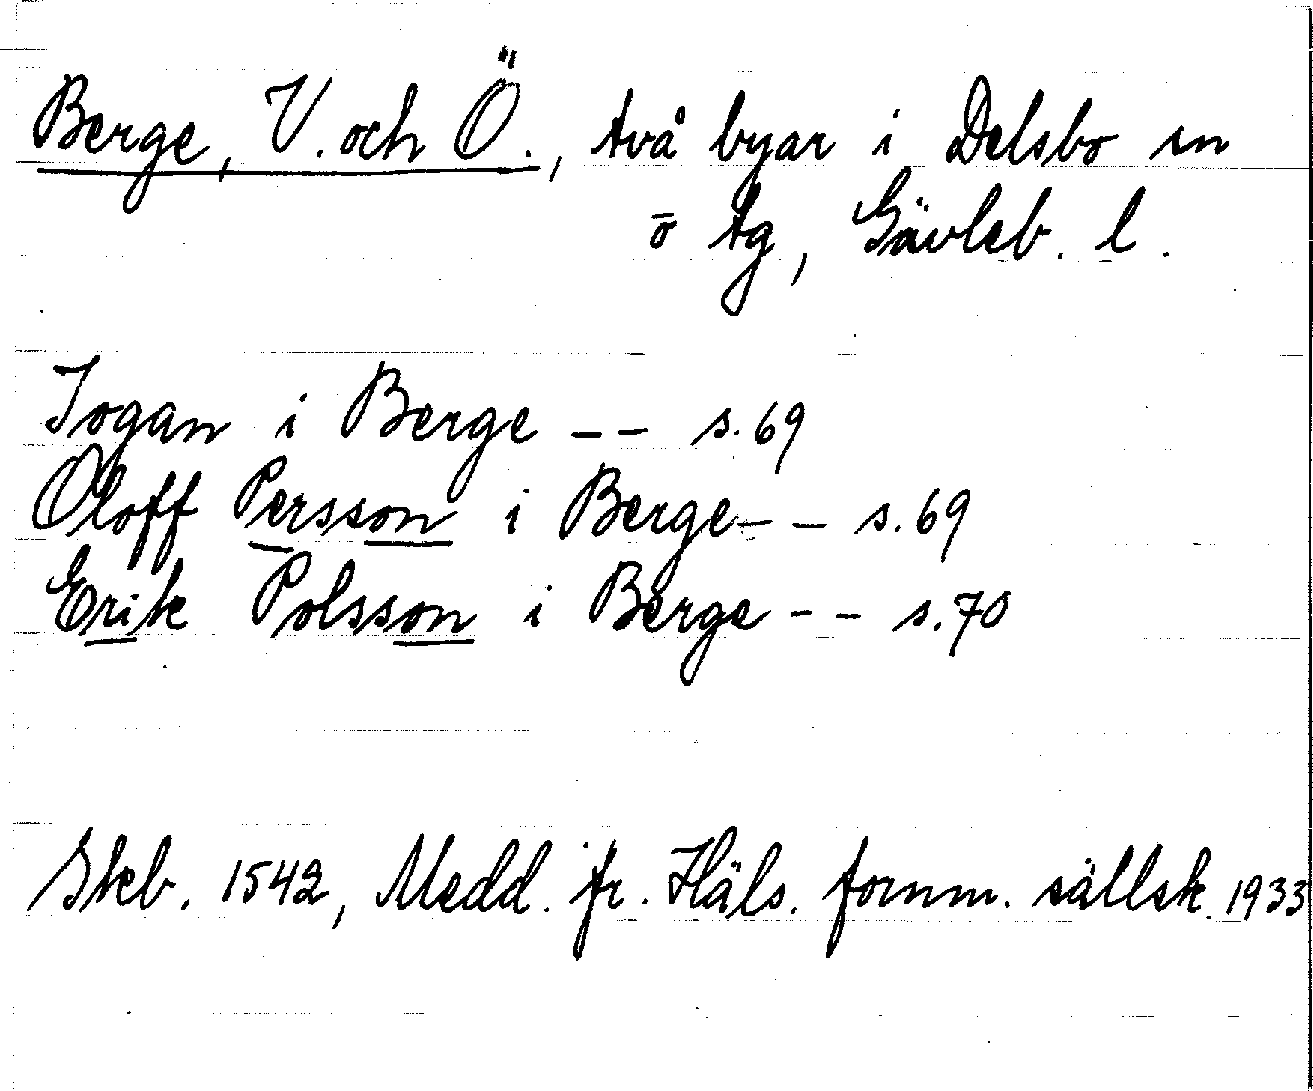 Berge, V. och Ö., två byar i Delsbo sn
o tg, Gävleb. l.
Jogan i Berge -- s. 69
Oloff Persson i Berge -- s. 69
Erik Polsson i Berge -- s. 70
Skeb. 1542, Medd. fr. Häls. fornm. sällsk. 1933